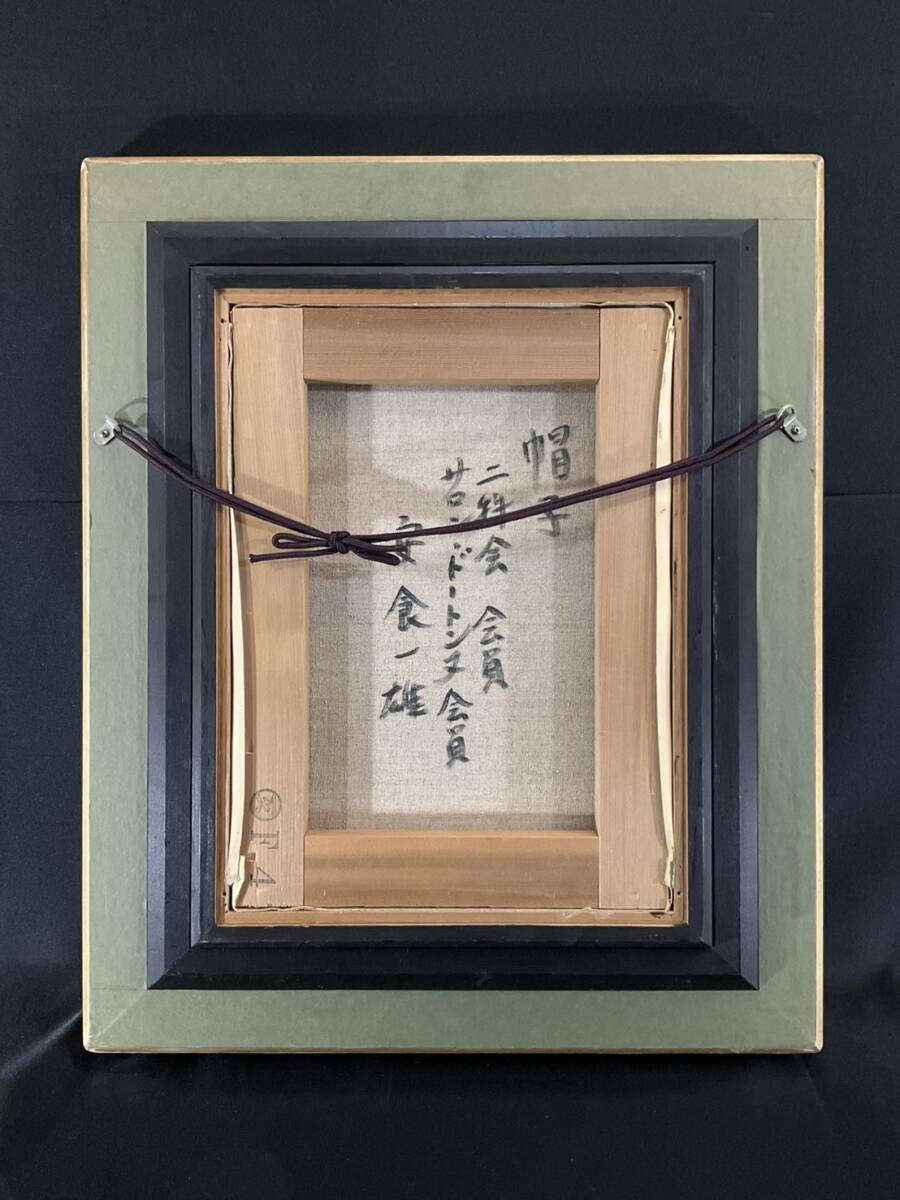 帽子
二科会 会員
サロンドートンヌ会員
安食一雄
F4